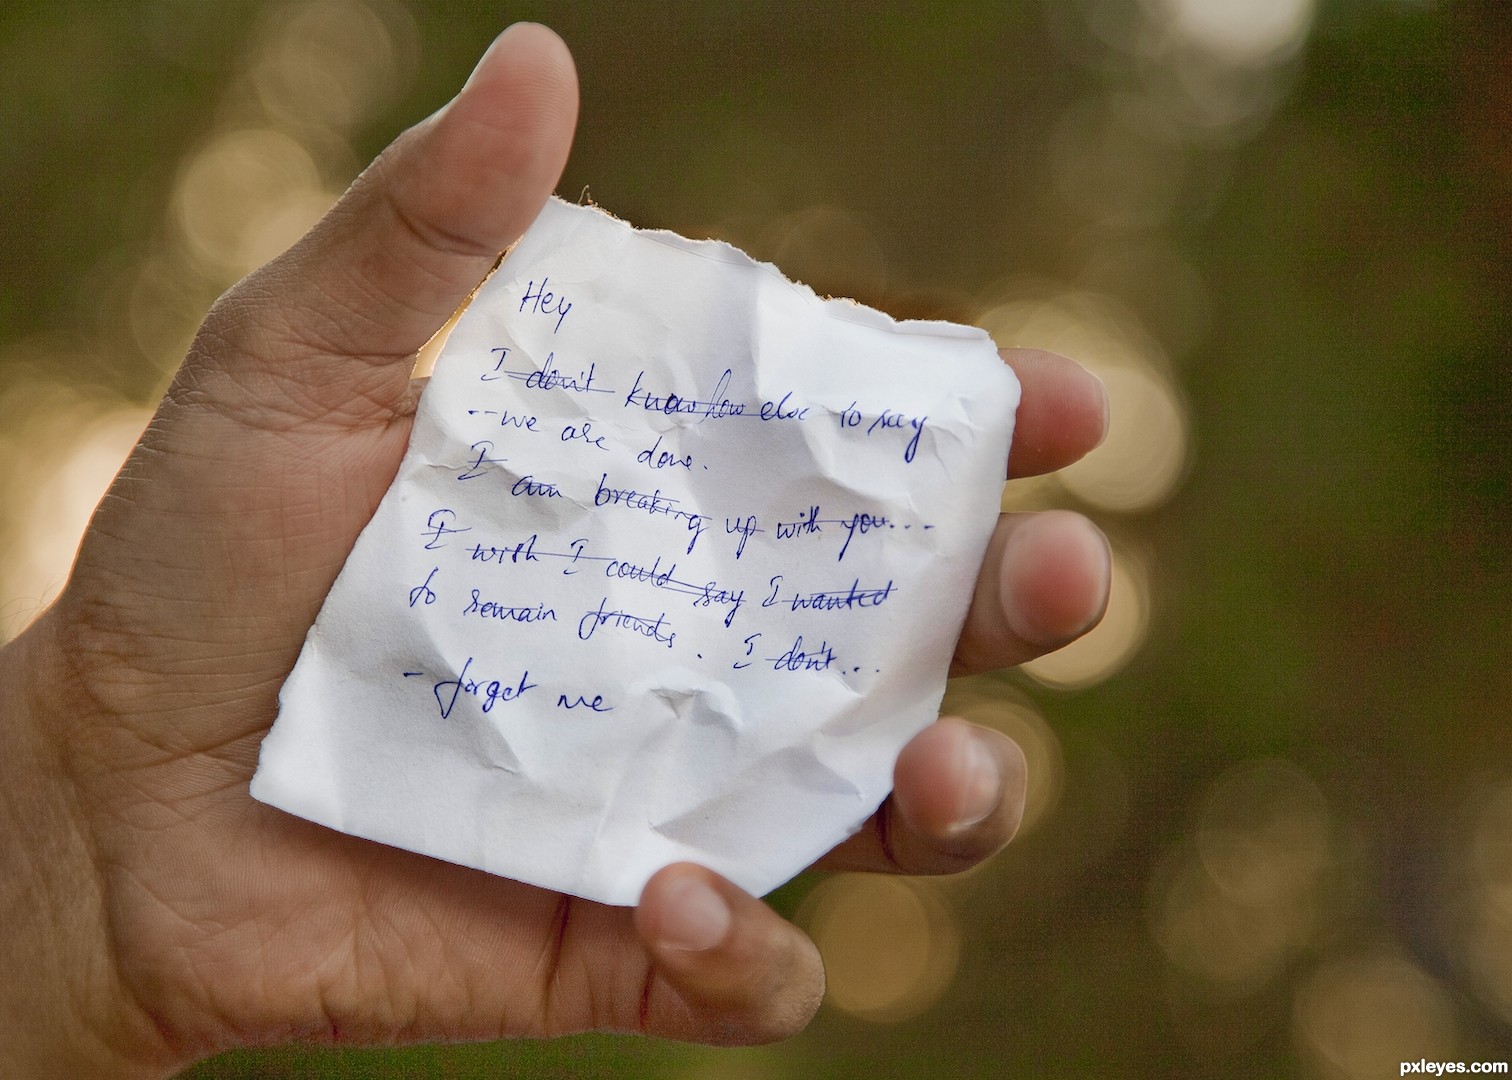 Hey
I don't know how else to say
--we are done.
I am breaking up with you...
I wish I could say I wanted
to remain friends. I don't...
- forget me
pxleyes.com